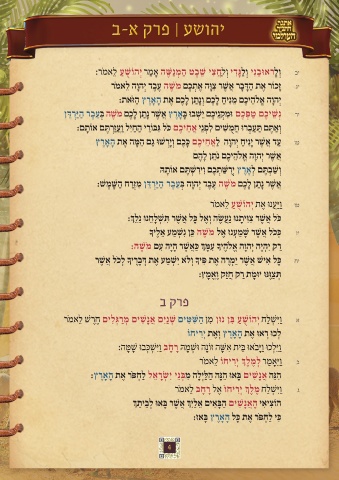 אתה
העולמו
יהושע | פרק א-ב
יב וְלָראוּבֵנִי וְלַגָּדִי וְלַחֲצִי שֵׁבֶט הַמְנַשֶּׁה אָמַר יְהוֹשֻׁעַ לֵאמֹר:
יג זָכוֹר אֶת הַדָּבָר אֲשֶׁר צִוָּה אֶתְכֶם מֹשֶׁה עֶבֶד יְהוָה לֵאמֹר
יְהוָה אֱלֹהֵיכֶם מֵנִיחַ לָכֶם וְנָתַן לָכֶם אֶת הָאָרֶץ הַזֹּאת:
יד נְשֵׁיכֶם טַפְּכֶם וּמִקְנֵיכֶם יֵשְׁבוּ בָּאָרֶץ אֲשֶׁר נָתַן לָכֶם מֹשֶׁה בְּעֵבֶר הַיַּרְדֵּן
וְאַתֶּם תַּעַבְרוּ חֲמֻשִׁים לִפְנֵי אֲחֵיכֶם כֹּל גִּבּוֹרֵי הַחַיִל וַעֲזַרְתֶּם אוֹתָם:
טו עַד אֲשֶׁר יָנִיחַ יְהוָה לַאֲחֵיכֶם כָּכֶם וְיָרְשׁוּ גַם הֵמָּה אֶת הָאָרֶץ
אֲשֶׁר יְהוָה אֱלֹהֵיכֶם נֹתֵן לָהֶם
וְשַׁבְתֶּם לְאֶרֶץ יְרֻשַּׁתְכֶם וִירִשְׁתֶּם אוֹתָהּ
אֲשֶׁר נָתַן לָכֶם מֹשֶׁה עֶבֶד יְהוָה בְּעֵבֶר הַיַּרְדֵּן מִזְרַח הַשָּׁמֶשׁ:
טז וַיַּעֲנוּ אֶת יְהוֹשֻׁעַ לֵאמֹר
כֹּל אֲשֶׁר צִוִּיתָנוּ נַעֲשֶׂה וְאֶל כָּל אֲשֶׁר תִּשְׁלָחֵנוּ נֵלֵךְ:
יז כְּכֹל אֲשֶׁר שָׁמַעְנוּ אֶל מֹשֶׁה כֵּן נִשְׁמַע אֵלֶיךָ
רַק יִהְיֶה יְהוָה אֱלֹהֶיךָ עִמָּךְ כַּאֲשֶׁר הָיָה עִם מֹשֶׁה:
יח כָּל אִישׁ אֲשֶׁר יַמְרֶה אֶת פִּיךָ וְלֹא יִשְׁמַע אֶת דְּבָרֶיךָ לְכֹל אֲשֶׁר
תְּצַוֶּנּוּ יוּמָת רַק חֲזַק וֶאֱמָץ:
פרק ב
א וַיִּשְׁלַח יְהוֹשֻׁעַ בִּן נוּן מִן הַשִּׁטִּים שְׁנַיִם אֲנָשִׁים מְרַגְּלִים חֶרֶשׁ לֵאמֹר
לְכוּ רְאוּ אֶת הָאָרֶץ וְאֶת יְרִיחוֹ
וַיֵּלְכוּ וַיָּבֹאוּ בֵּית אִשָּׁה זוֹנָה וּשְׁמָהּ רָחָב וַיִּשְׁכְּבוּ שָׁמָּה:
ב וַיֵּאָמַר לְמֶלֶךְ יְרִיחוֹ לֵאמֹר
הִנֵּה אֲנָשִׁים בָּאוּ הֵנָּה הַלַּיְלָה מִבְּנֵי יִשְׂרָאֵל לַחְפֹּר אֶת הָאָרֶץ:
ג וַיִּשְׁלַח מֶלֶךְ יְרִיחוֹ אֶל רָחָב לֵאמֹר
הוֹצִיאִי הָאֲנָשִׁים הַבָּאִים אֵלַיִךְ אֲשֶׁר בָּאוּ לְבֵיתֵךְ
כִּי לַחְפֹּר אֶת כָּל הָאָרֶץ בָּאוּ: